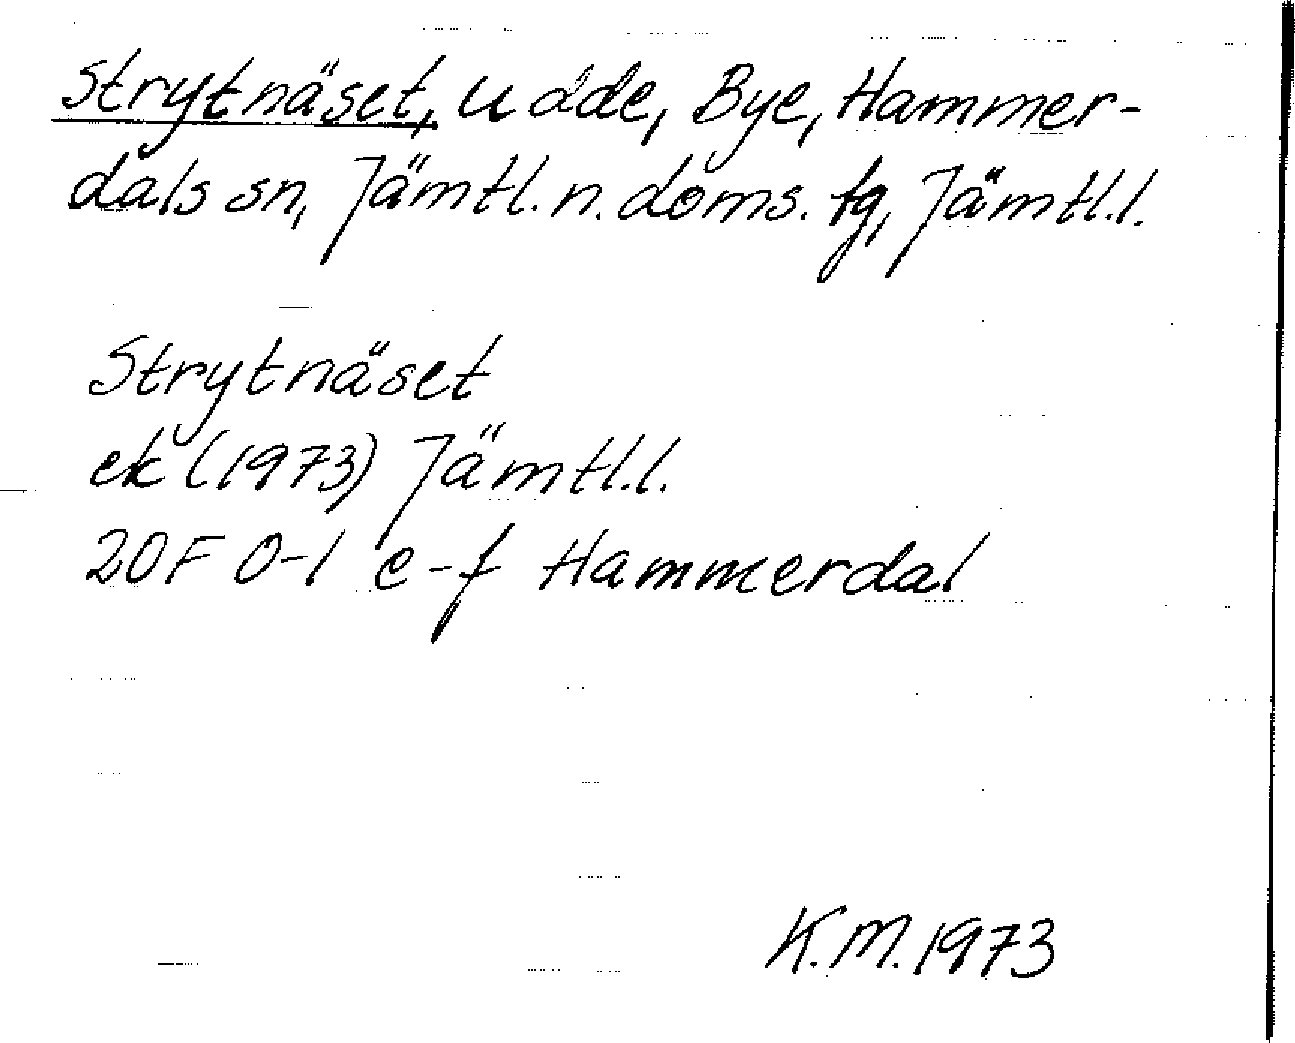 Strytnäset, udde, Bye, Hammer-
dals sn, Jämtl. n. doms. fg, Jämtl. l.
Strytnäset
ek (1973) Jämtl. l.
20F 0-1 e-f Hammerdal
K.M. 1973